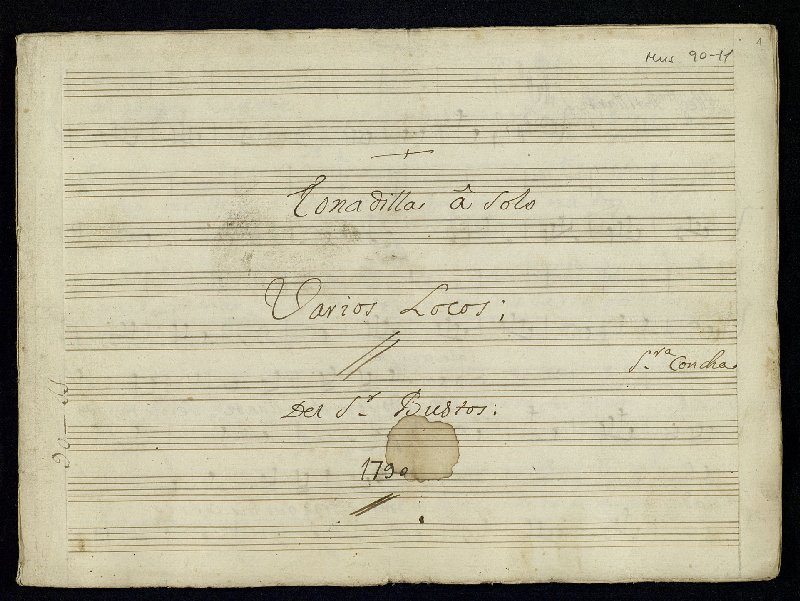 Mus 90-11
1
Tonadilla â Solo
Varios Locos;
S.ra Concha
Del S.r Bustos:
1790
90-11